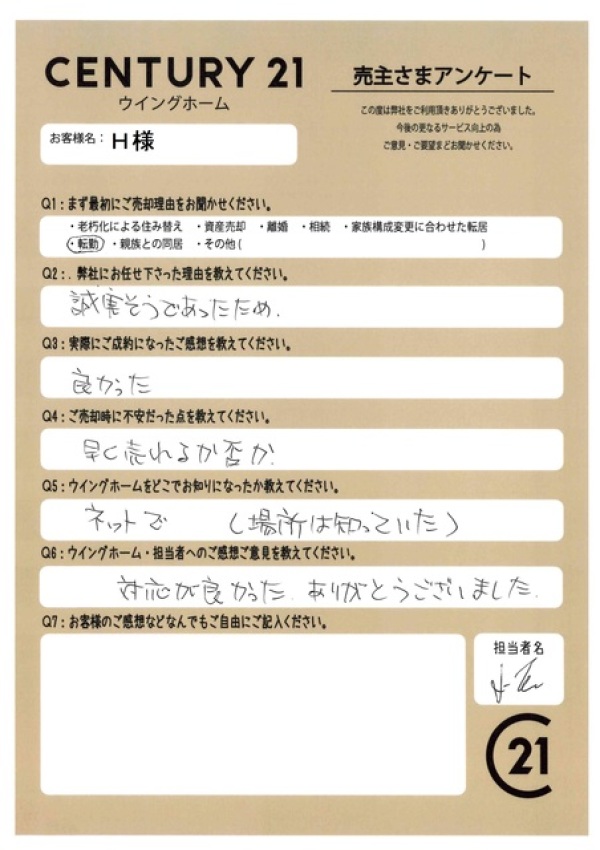 CENTURY 21
ウイングホーム
売主さまアンケート
この度は弊社をご利用頂きありがとうございました。
今後の更なるサービス向上の為
ご意見・ご要望まどお聞かせください。
お客様名： H様
Q1：まず最初にご売却理由をお聞かせください。
・老朽化による住み替え ・資産売却 ・離婚 ・相続 ・家族構成変更に合わせた転居
・転勤 ・親族との同居 ・その他 ( )
Q2：. 弊社にお任せ下さった理由を教えてください。
誠実そうであったため.
Q3：実際にご成約になったご感想を教えてください。
良かった
Q4：ご売却時に不安だった点を教えてください。
早く売れるか否か.
Q5：ウイングホームをどこでお知りになったか教えてください。
ネットで (場所は知っていた)
Q6：ウイングホーム・担当者へのご感想ご意見を教えてください。
対応が良かった. ありがとうございました.
Q7：お客様のご感想などなんでもご自由にご記入ください。
担当者名
C21